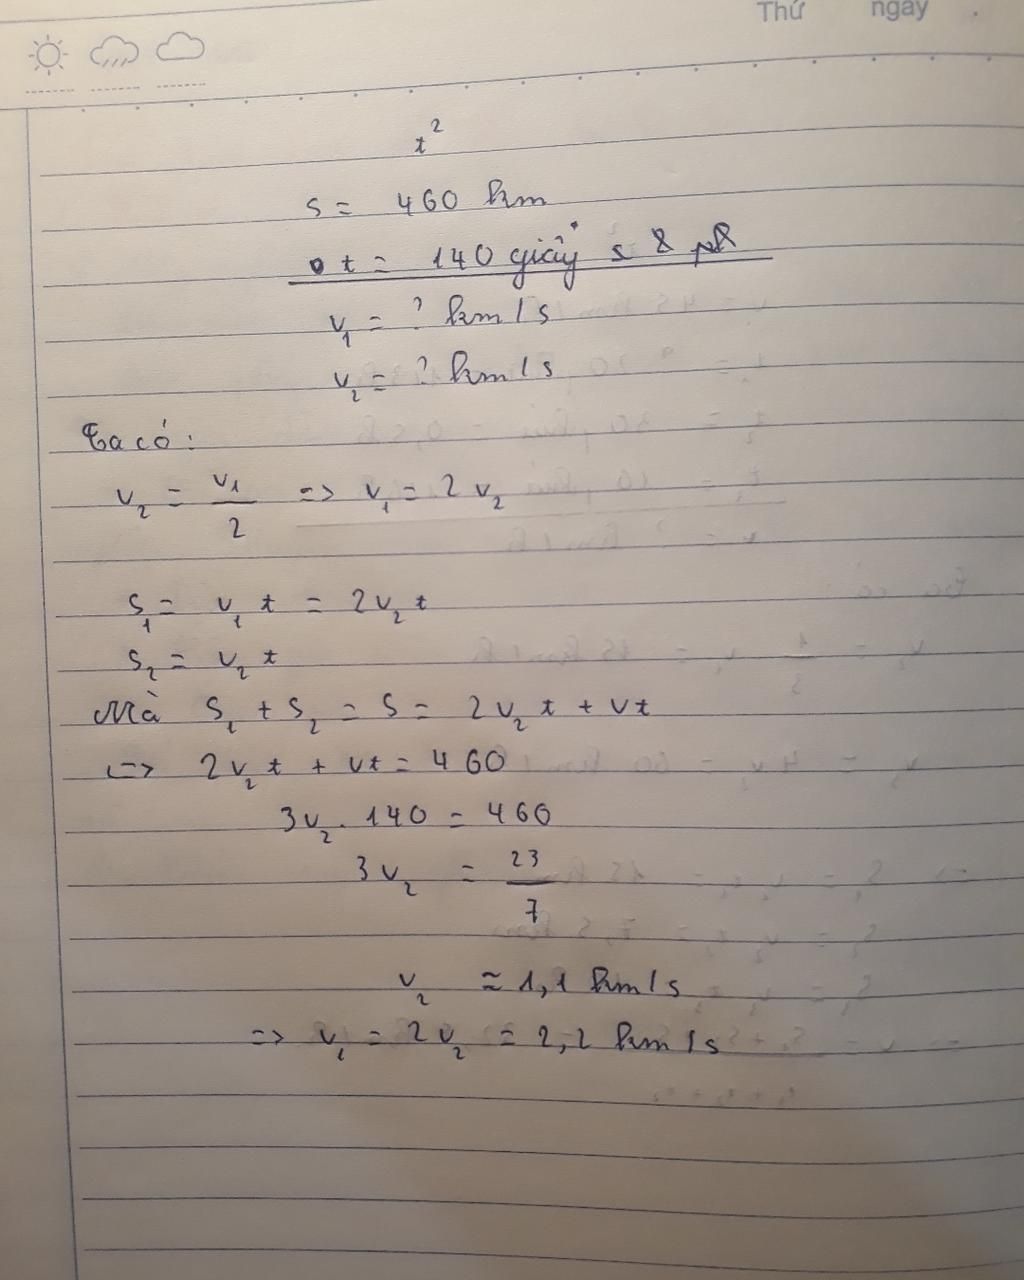 Thứ ngày .
t²
s = 460 km
t = 140 giây
v₁ = ? km/s
v₂ = ? km/s
Ta có :
v₂ = v₁/2 => v₁ = 2 v₂
s₁ = v₁ t = 2v₂ t
s₂ = v₂ t
Mà s₁ + s₂ = s = 2v₂ t + vt
<=> 2v₂ t + vt = 460
3v₂ . 140 = 460
3v₂ = 23/7
v₂ ≈ 1,1 km/s
=> v₁ = 2v₂ = 2,2 km/s